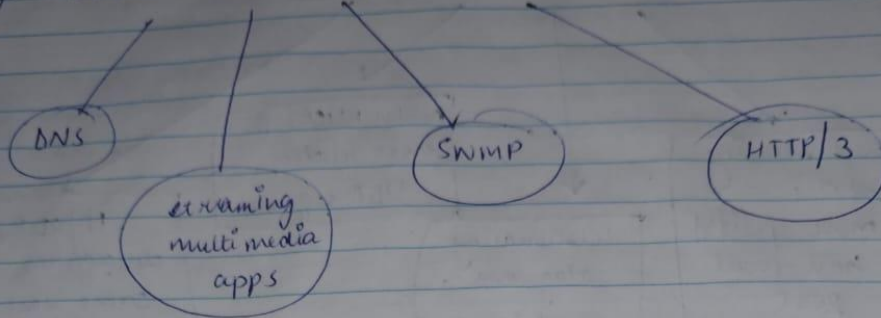 DNS
streaming
multimedia
apps
SNMP
HTTP/3